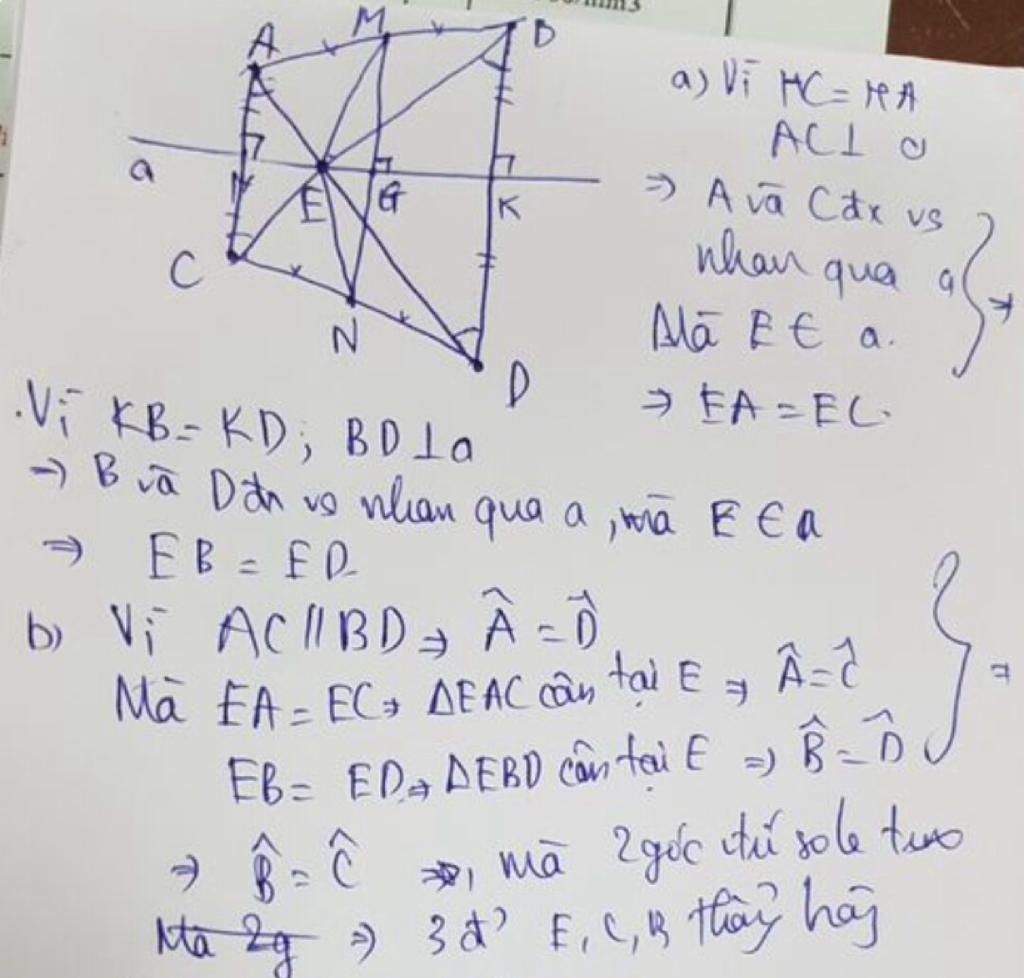 /mm3
A
M
B
a
H
E
G
K
C
N
D
a) Vì HC = HA
AC ⊥ a
⇒ A và C đx vs
nhau qua a
Mà E ∈ a.
⇒ EA = EC.
. Vì KB = KD; BD ⊥ a
⇒ B và D đx vs nhau qua a, mà E ∈ a
⇒ EB = ED
b) Vì AC // BD ⇒ Â = D̂
Mà EA = EC ⇒ ΔEAC cân tại E ⇒ Â = Ĉ
EB = ED ⇒ ΔEBD cân tại E ⇒ B̂ = D̂
⇒ B̂ = Ĉ, mà 2 góc ở vị so le
Mà 2g ⇒ 3 đ' E, C, B thẳng hàng